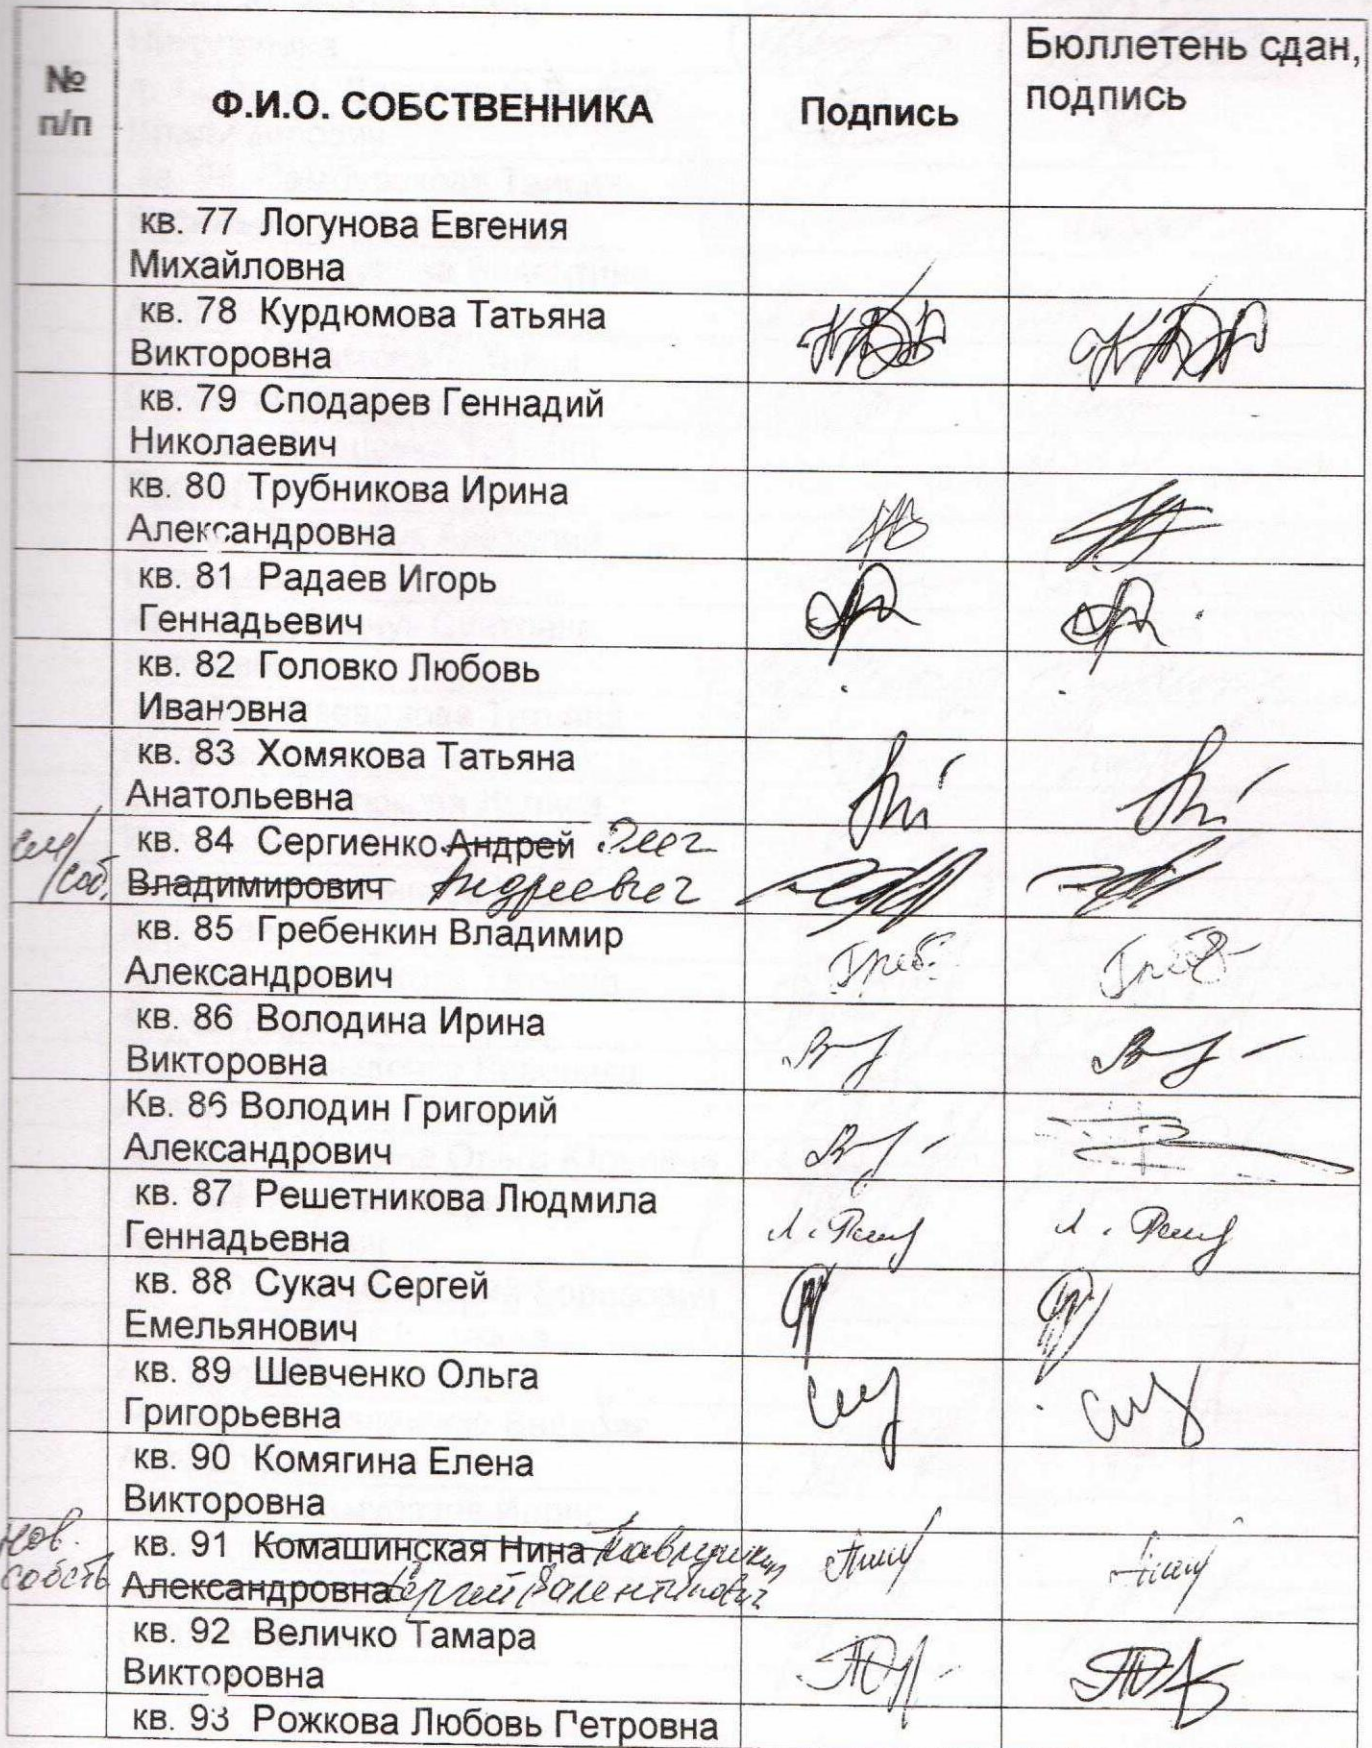 №
п/п
Ф.И.О. СОБСТВЕННИКА
Подпись
Бюллетень сдан,
подпись
кв. 77 Логунова Евгения
Михайловна
кв. 78 Курдюмова Татьяна
Викторовна
кв. 79 Сподарев Геннадий
Николаевич
кв. 80 Трубникова Ирина
Александровна
кв. 81 Радаев Игорь
Геннадьевич
кв. 82 Головко Любовь
Ивановна
кв. 83 Хомякова Татьяна
Анатольевна
кв. 84 Сергиенко Андрей Олег
соб. Владимирович Андреевич
кв. 85 Гребенкин Владимир
Александрович
Греб.
кв. 86 Володина Ирина
Викторовна
Кв. 86 Володин Григорий
Александрович
кв. 87 Решетникова Людмила
Геннадьевна
кв. 88 Сукач Сергей
Емельянович
кв. 89 Шевченко Ольга
Григорьевна
кв. 90 Комягина Елена
Викторовна
нов. кв. 91 Комашинская Нина
собств Александровна Сергей Валентинович
кв. 92 Величко Тамара
Викторовна
кв. 93 Рожкова Любовь Петровна